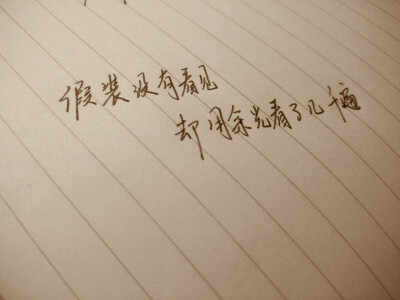 假装没有看见
却用余光看了几千遍